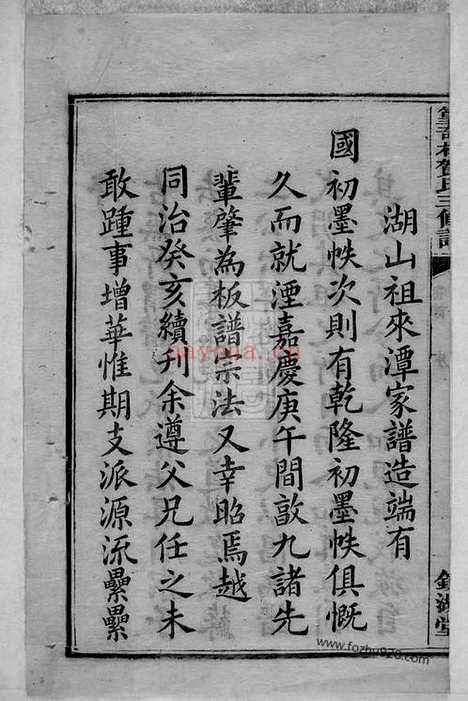 湖山祖來潭家譜造端有
國初墨帙次則有乾隆初墨帙俱慨
久而就湮嘉慶庚午間敦九諸先
輩肇為板譜宗法又幸昭焉越
同治癸亥續刋余遵父兄任之未
敢踵事增華惟期支派源流纍纍
nayona.cn
www.fozhu920.com